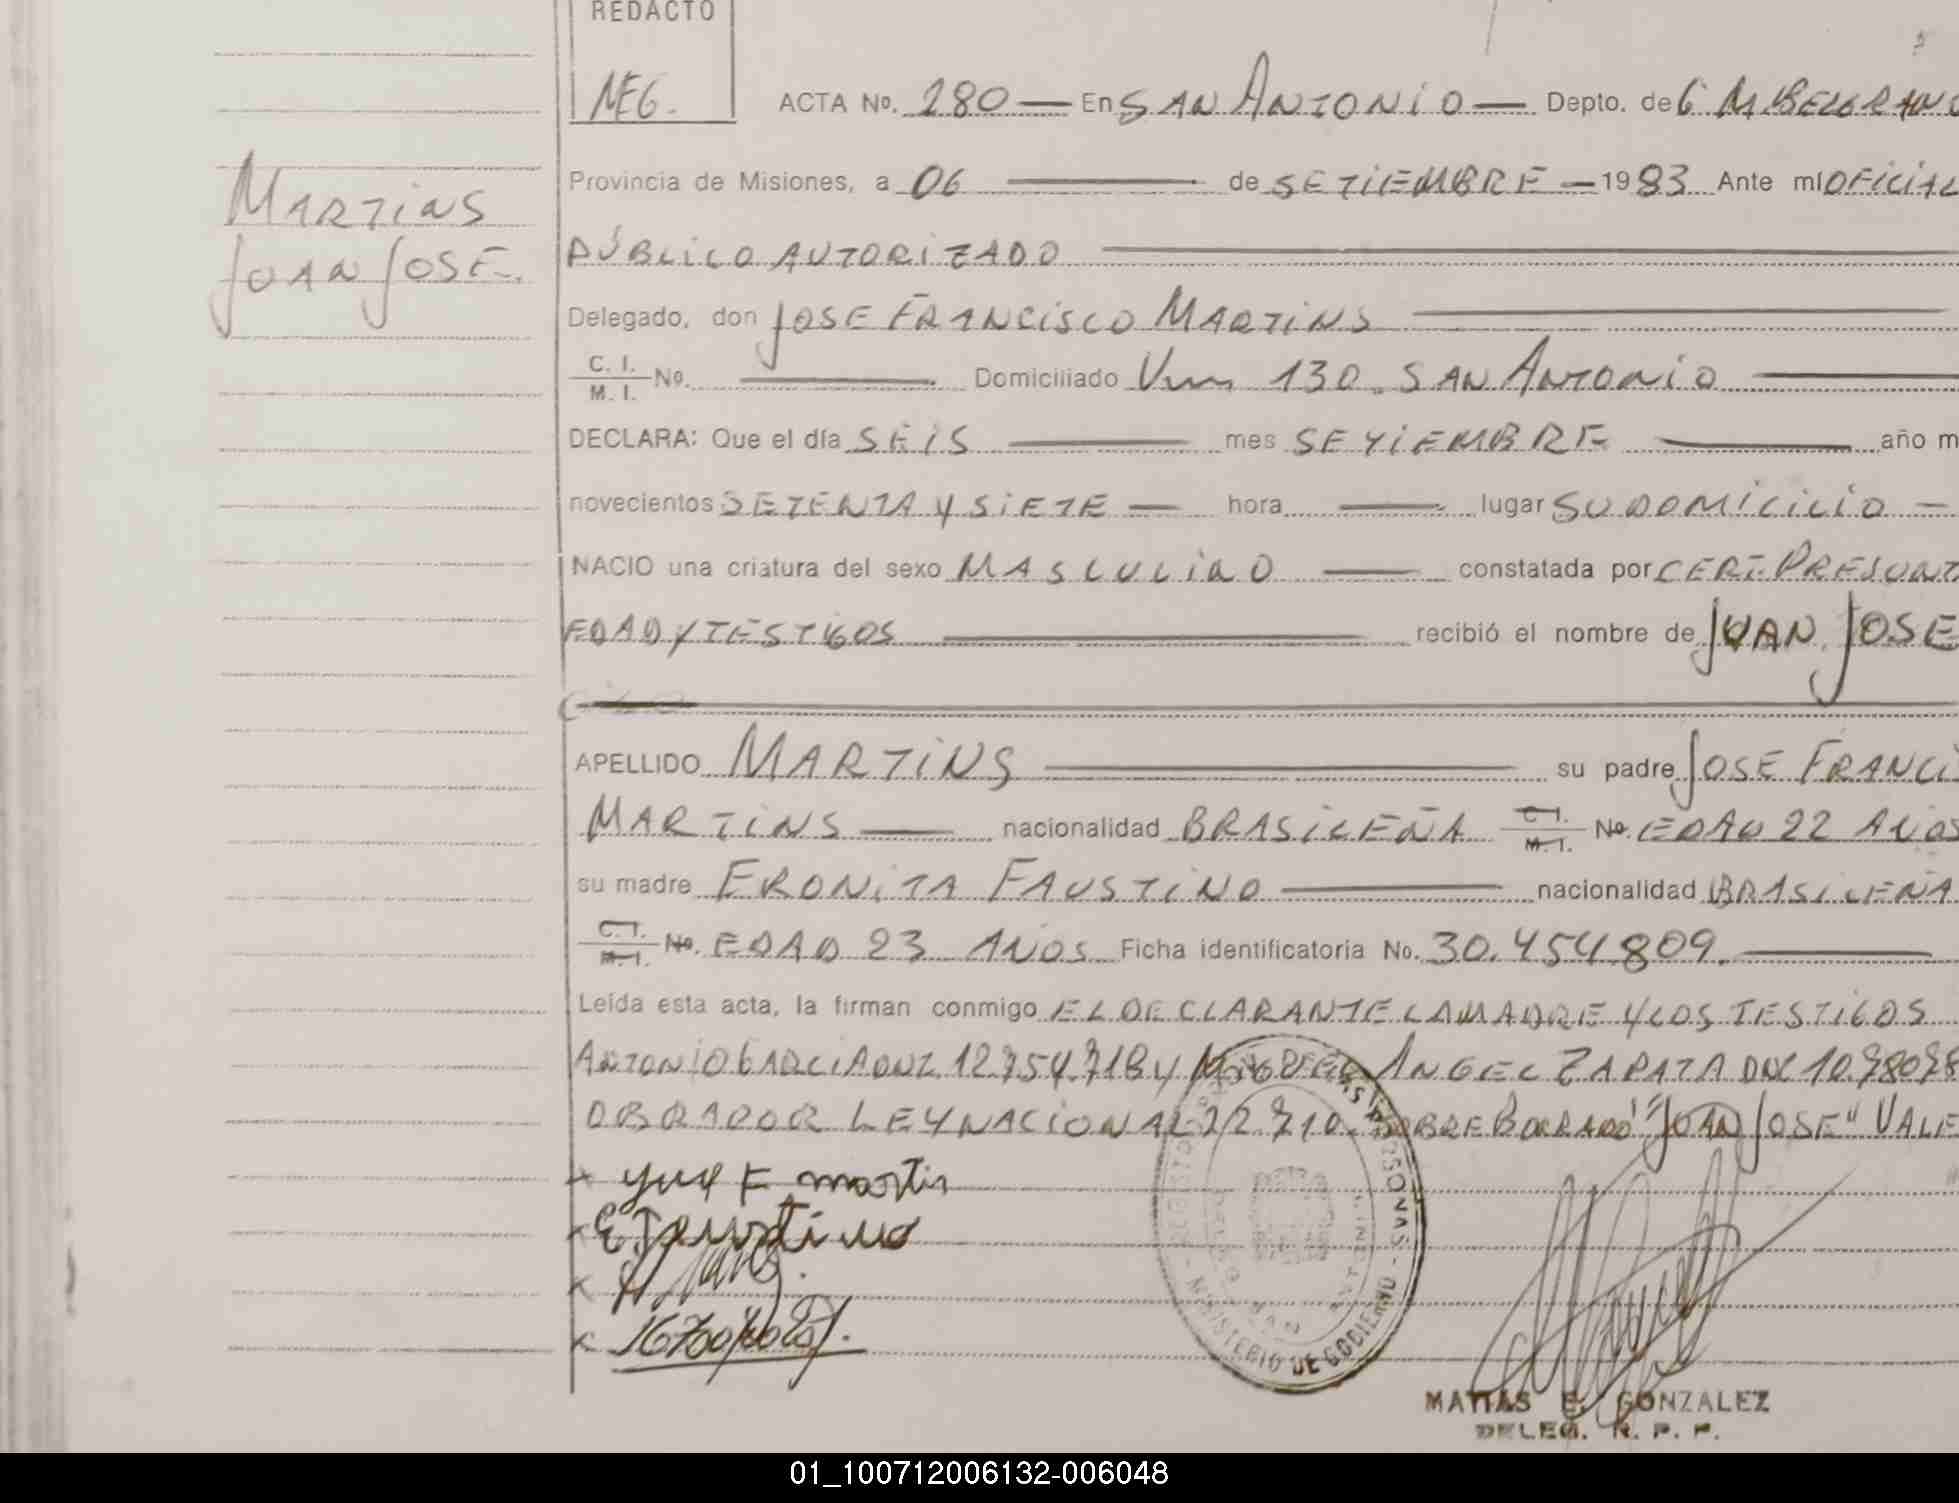 REDACTO
NEG.
ACTA No. 280 — En SAN ANTONIO — Depto. de G M. BELGRANO
MARTINS
JUAN JOSE.
Provincia de Misiones, a 06 — de SETIEMBRE — 1983 Ante mí OFICIAL
PÚBLICO AUTORIZADO
Delegado, don JOSE FRANCISCO MARTINS
C. I. / M. I. No. — Domiciliado 130. SAN ANTONIO —
DECLARA: Que el día SEIS — mes SEYIEMBRE — año m
novecientos SETENTA Y SIETE — hora — lugar SU DOMICILIO —
NACIO una criatura del sexo MASCULINO — constatada por CERT. PRESUNT
EDAD Y TESTIGOS — recibió el nombre de JUAN JOSE
APELLIDO MARTINS — su padre JOSE FRANCI
MARTINS — nacionalidad BRASILEÑA C. I. / M. I. No. EDAD 22 AÑOS
su madre ERONITA FAUSTINO — nacionalidad BRASILEÑA
C. I. / M. I. No. EDAD 23 AÑOS Ficha identificatoria No. 30.454.809. —
Leída esta acta, la firman conmigo EL DECLARANTE LA MADRE Y LOS TESTIGOS
ANTONIO GARCIA DNI. 12.754.718 y MIGUEL ANGEL ZAPATA DNI 10.78078
OBRADOR LEY NACIONAL 22.710. SOBRE BORRADO "JUAN JOSE" VALE
F martin
E Faustino
REGISTRO PERSONAS - MINISTERIO DE GOBIERNO
SAN ANTONIO
MATIAS E. GONZALEZ
DELEG. R. P. P.
01_100712006132-006048